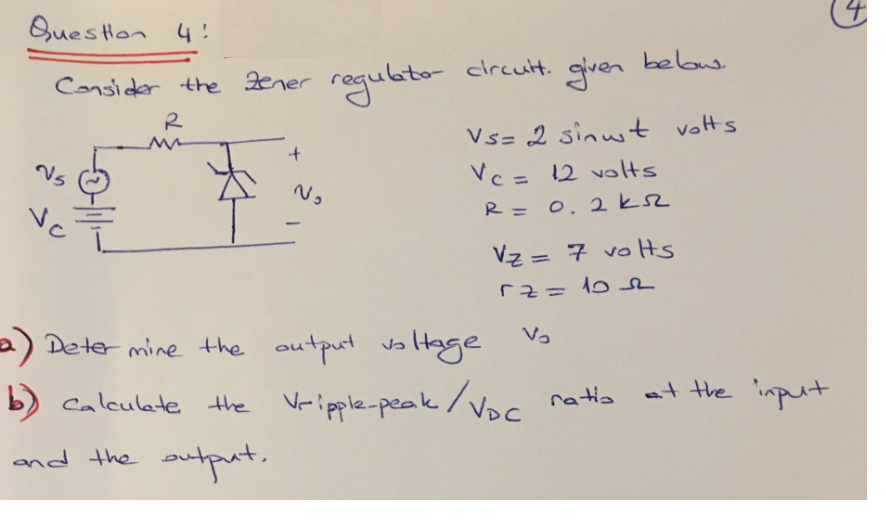 4
Question 4:
Consider the Zener regulator circuit. given below.
R
Vs
Vc
+
Vo
-
Vs = 2 sinwt volts
Vc = 12 volts
R = 0.2 kΩ
VZ = 7 volts
rz = 10 Ω
a) Determine the output voltage Vo
b) Calculate the Vripple-peak/VDC ratio at the input
and the output.